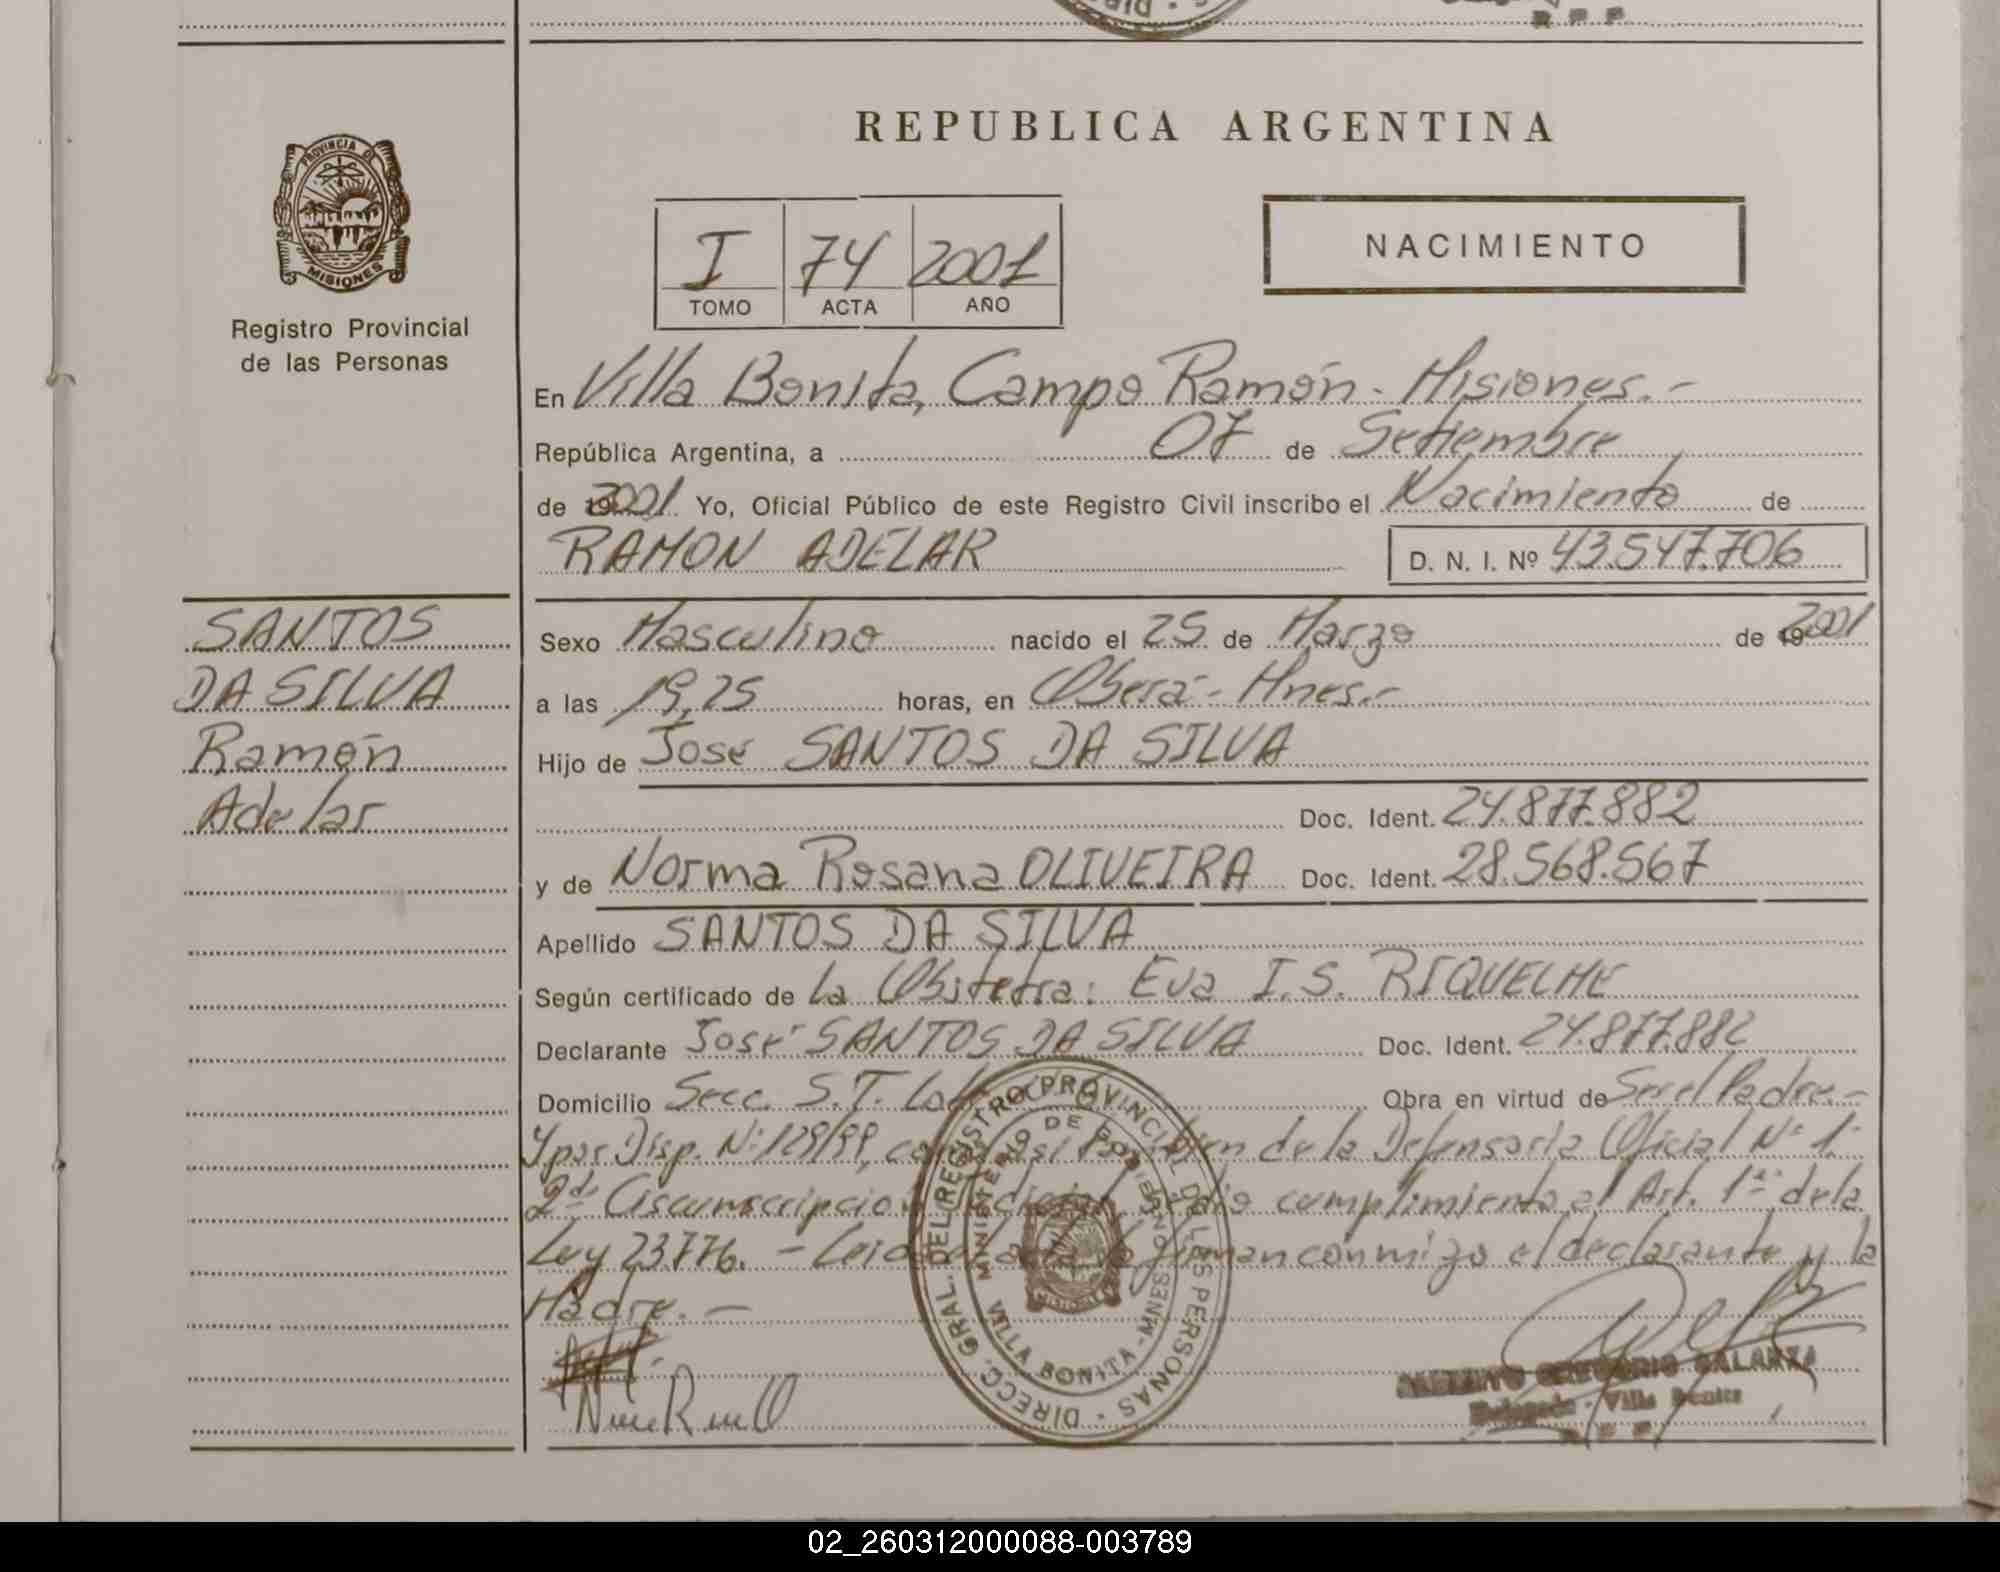 REPUBLICA ARGENTINA
PROVINCIA DE
MISIONES
Registro Provincial
de las Personas
I 74 2001
TOMO ACTA AÑO
NACIMIENTO
En Villa Bonita, Campo Ramón - Misiones.-
República Argentina, a 07 de Setiembre
de 2001 Yo, Oficial Público de este Registro Civil inscribo el Nacimiento de
RAMON ADELAR D. N. I. Nº 43.547.706
SANTOS
DA SILVA
Ramón
Adelar
Sexo Masculino nacido el 25 de Marzo de 2001
a las 19,25 horas, en Oberá - Mnes.-
Hijo de José SANTOS DA SILVA
Doc. Ident. 24.877.882
y de Norma Rosana OLIVEIRA Doc. Ident. 28.568.567
Apellido SANTOS DA SILVA
Según certificado de La Obstetra: Eva I.S. RIQUELME
Declarante José SANTOS DA SILVA Doc. Ident. 24.877.882
Domicilio Secc. S.T. Obra en virtud de Ser el Padre.-
Y por Disp. Nº 129/99, como así también de la Defensoria Oficial Nº 1-
2da Circunscripcion Judicial, dio cumplimiento al Art. 1º de la
Ley 23776. - Leida el acta la firman conmigo el declarante y la
Madre. -
DIRECC. GRAL. DEL REGISTRO PROVINCIAL DE LAS PERSONAS
MINISTERIO DE GOBIERNO
VILLA BONITA - MNES
MISIONES
GREGORIO GALARZA
Delegado - Villa Bonita
R P P
02_260312000088-003789